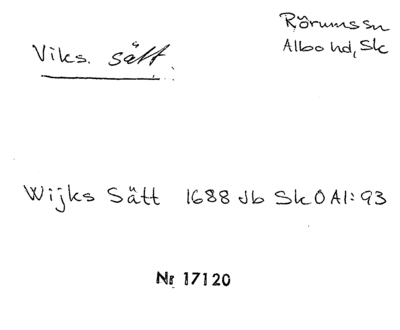 Viks. sätt
Rörumssn
Albo hd, Sk
Wijks Sätt 1688 Jb SkOAI:93
Nr 17120